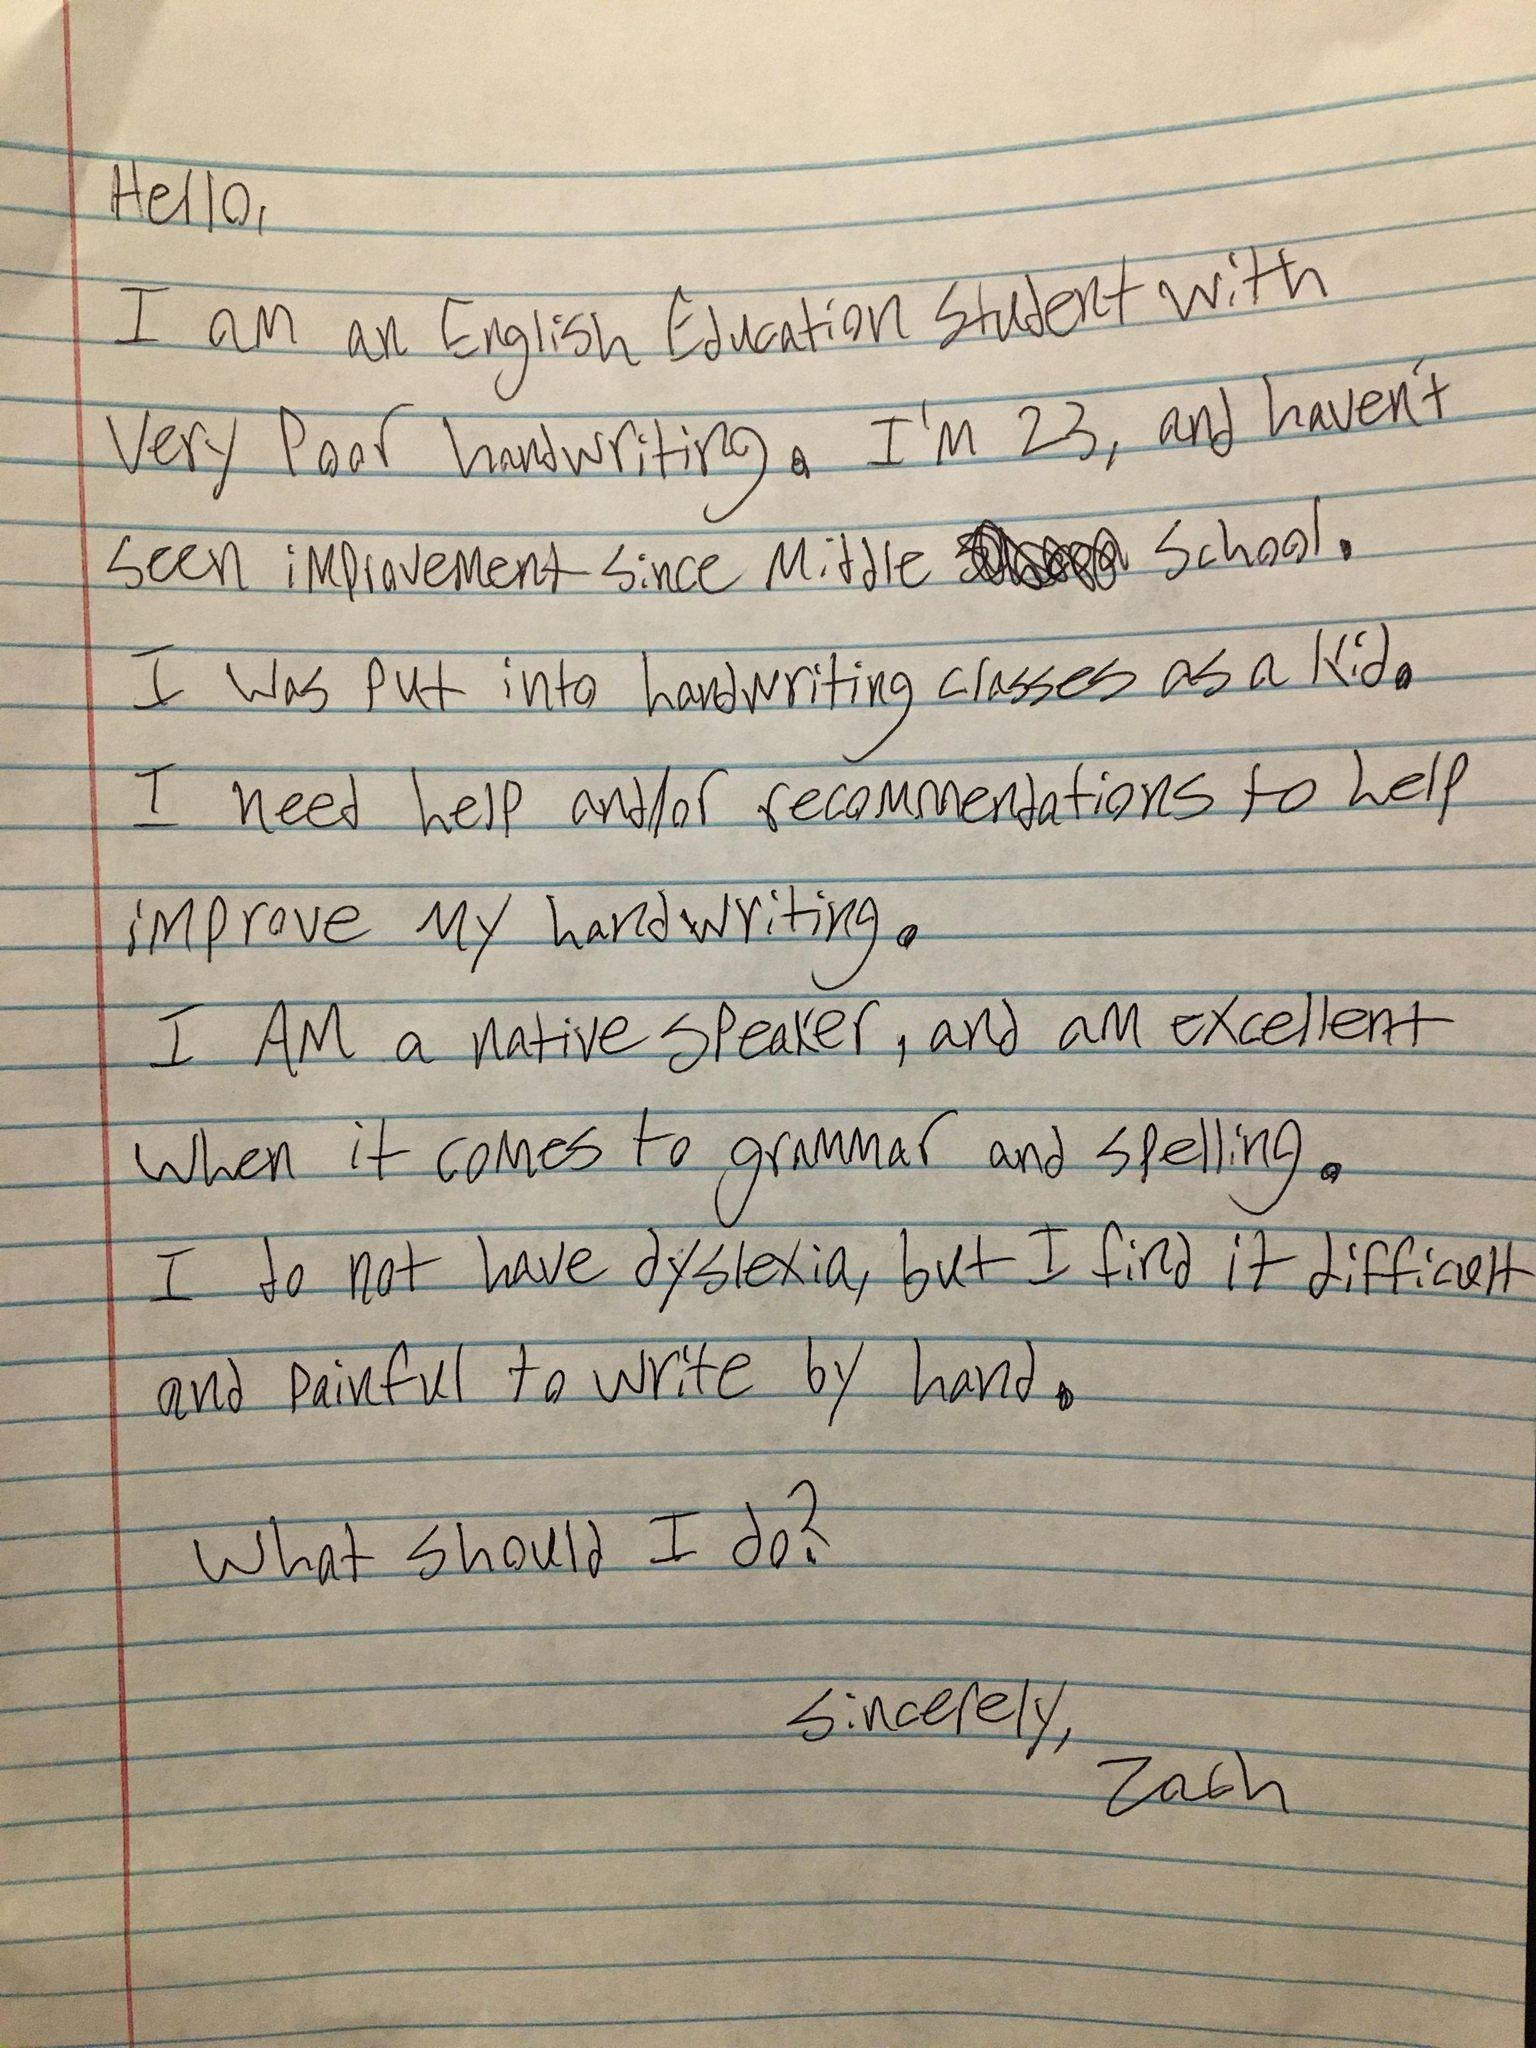 Hello,
I am an English Education student with
Very Poor handwriting. I'm 23, and haven't
seen improvement since Middle school.
I was put into handwriting classes as a kid.
I need help and/or recommendations to help
improve my handwriting.
I AM a native speaker, and am excellent
when it comes to grammar and spelling.
I do not have dyslexia, but I find it difficult
and painful to write by hand.
What should I do?
sincerely,
Zach